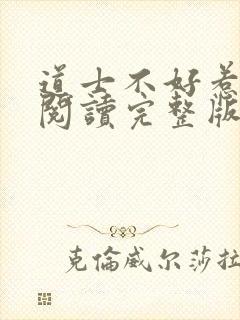 道士不好惹
閱讀完整版
克倫威尔莎拉